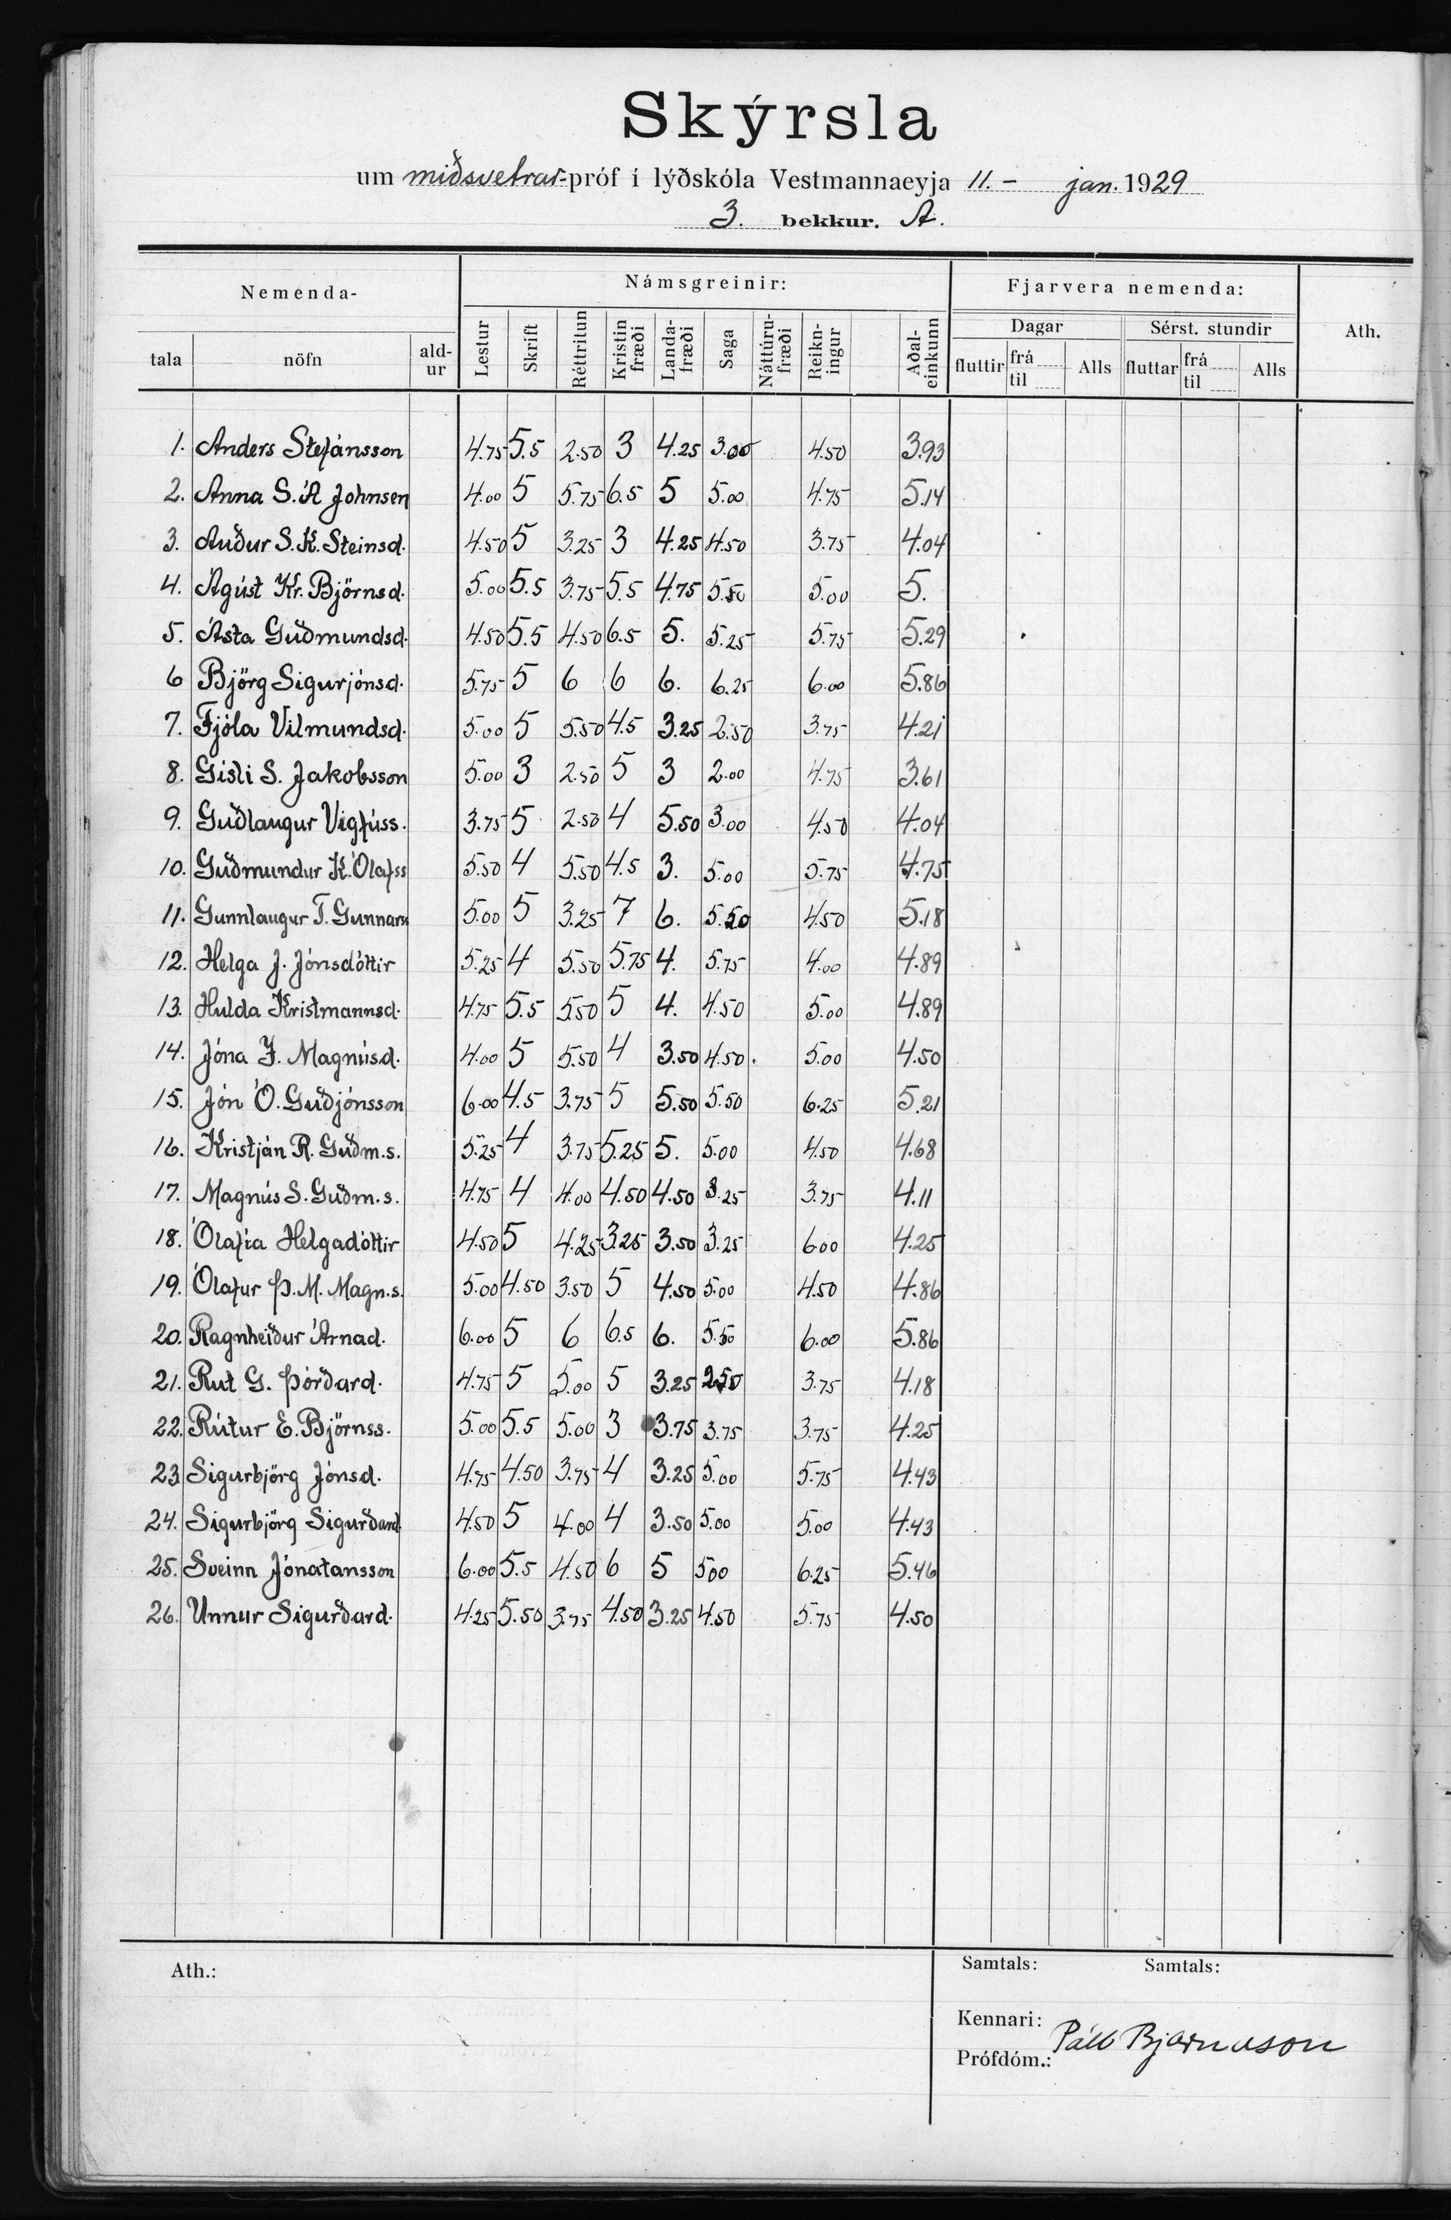 Skýrsla
um miðsvetrar-próf í lýðskóla Vestmannaeyja 11. - jan. 1929
3. bekkur. A.
Nemenda- Námsgreinir: Fjarvera nemenda: Ath.
Dagar Sérst. stundir
tala nöfn ald-ur Lestur Skrift Réttritun Kristin fræði Landa-fræði Saga Náttúru-fræði Reikn-ingur Aðal-einkunn fluttir frá til Alls fluttar frá til Alls
1. Anders Stefánsson 4.75 5.5 2.50 3 4.25 3.00 4.50 3.93
2. Anna S. Á Johnsen 4.00 5 5.75 6.5 5 5.00 4.75 5.14
3. Auður S. K. Steinsd. 4.50 5 3.25 3 4.25 4.50 3.75 4.04
4. Ágúst Kr. Björnsd. 5.00 5.5 3.75 5.5 4.75 5.50 5.00 5.
5. Ásta Guðmundsd. 4.50 5.5 4.50 6.5 5. 5.25 5.75 5.29
6 Björg Sigurjónsd. 5.75 5 6 6 6. 6.25 6.00 5.86
7. Fjóla Vilmundsd. 5.00 5 5.50 4.5 3.25 2.50 3.75 4.21
8. Gísli S. Jakobsson 5.00 3 2.50 5 3 2.00 4.75 3.61
9. Guðlaugur Vigfúss. 3.75 5 2.50 4 5.50 3.00 4.50 4.04
10. Guðmundur K. Ólafss 5.50 4 5.50 4.5 3. 5.00 5.75 4.75
11. Gunnlaugur T. Gunnars 5.00 5 3.25 7 6. 5.50 4.50 5.18
12. Helga J. Jónsdóttir 5.25 4 5.50 5.75 4. 5.75 4.00 4.89
13. Hulda Kristmannsd. 4.75 5.5 5.50 5 4. 4.50 5.00 4.89
14. Jóna F. Magnúsd. 4.00 5 5.50 4 3.50 4.50. 5.00 4.50
15. Jón Ó. Guðjónsson 6.00 4.5 3.75 5 5.50 5.50 6.25 5.21
16. Kristján R. Guðm.s. 5.25 4 3.75 5.25 5. 5.00 4.50 4.68
17. Magnús S. Guðm.s. 4.75 4 4.00 4.50 4.50 3.25 3.75 4.11
18. Ólafía Helgadóttir 4.50 5 4.25 3.25 3.50 3.25 6.00 4.25
19. Ólafur Þ. M. Magn.s. 5.00 4.50 3.50 5 4.50 5.00 4.50 4.86
20. Ragnheiður Árnad. 6.00 5 6 6.5 6. 5.50 6.00 5.86
21. Rut G. Þórðard. 4.75 5 5.00 5 3.25 2.50 3.75 4.18
22. Rútur E. Björnss. 5.00 5.5 5.00 3 3.75 3.75 3.75 4.25
23 Sigurbjörg Jónsd. 4.75 4.50 3.75 4 3.25 5.00 5.75 4.43
24. Sigurbjörg Sigurðard 4.50 5 4.00 4 3.50 5.00 5.00 4.43
25. Sveinn Jónatansson 6.00 5.5 4.50 6 5 500 6.25 5.46
26. Unnur Sigurðard. 4.25 5.50 3.75 4.50 3.25 4.50 5.75 4.50
Ath.: Samtals: Samtals:
Kennari: Páll Bjarnason
Prófdóm.: